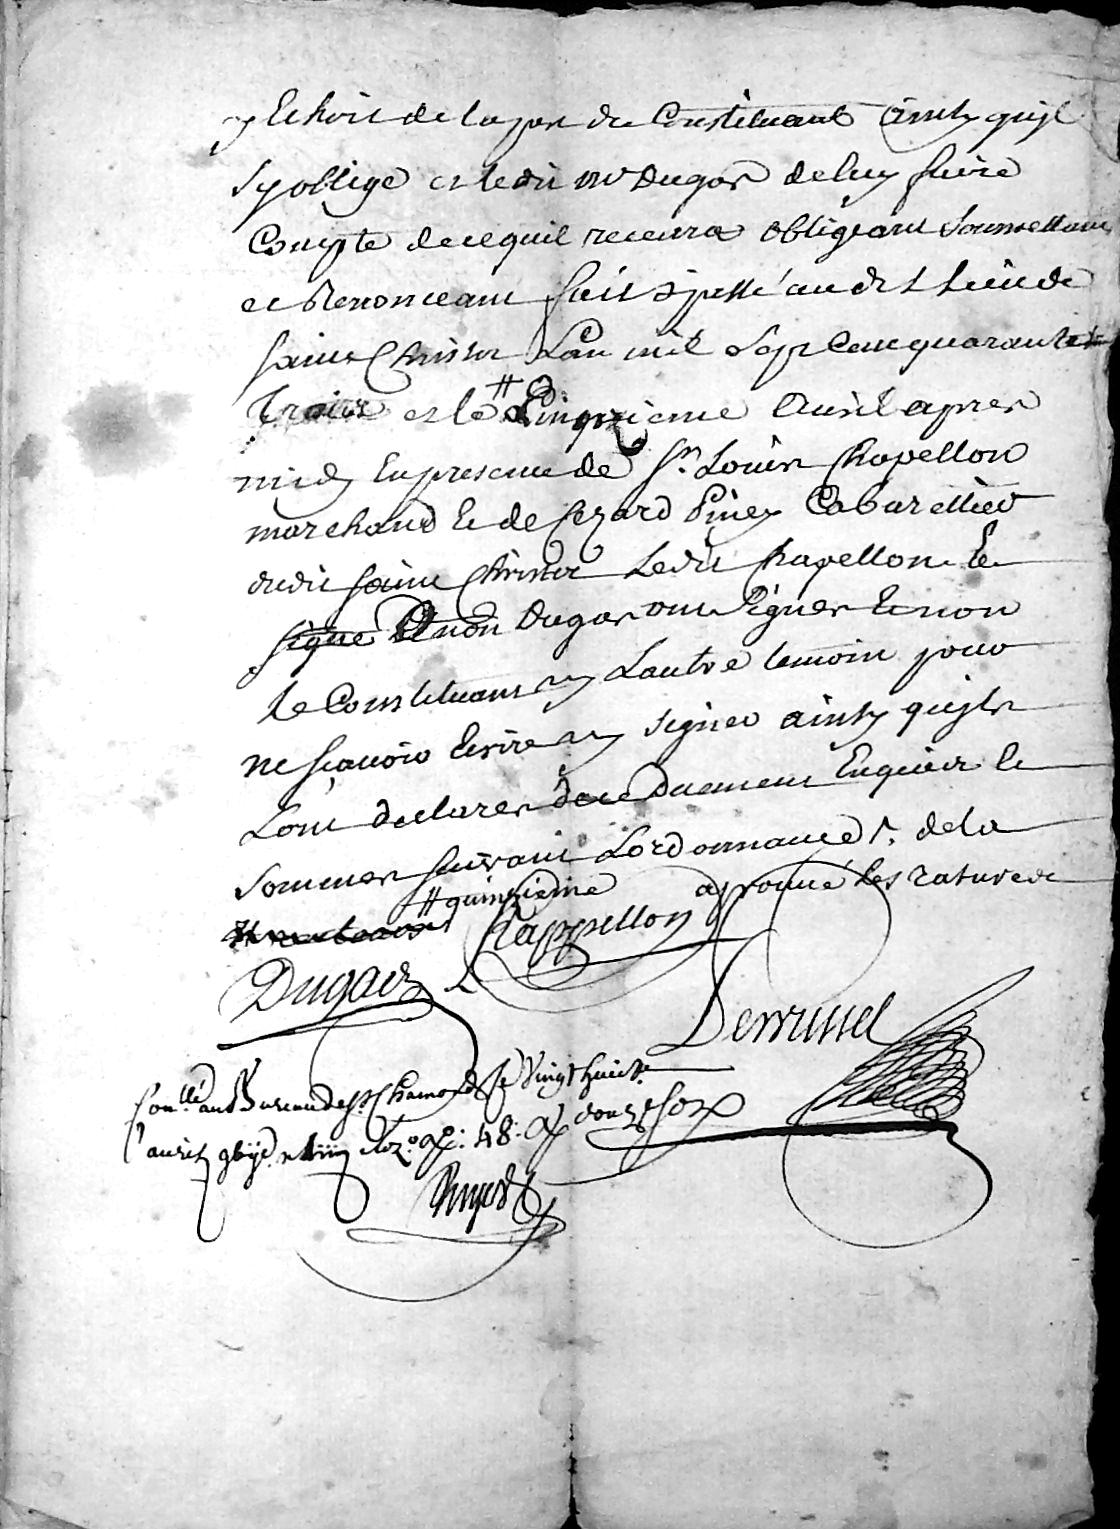 Echoit de la par du Constituant Ainsy quil
syoblige et ledit mr Dugas de luy faire
Compte de ce quil receura obligeant soumettant
et Renonceant fait & passé audit lieu de
saint Christor Lan mil sept Cent quarante
trois et le # quinzieme Auril apres
midy En presence de sr. Louis Chapellon
marchand Et de Cezard Piney Cabarettier
dudit saint Christor Ledit Chapellon Et
signe Et non Dugas ont signer Et non
le Constituant ny Lautre temoin pour
ne scauoir Ecrire ny signer ainsy quils
Lont declarer de ce Duement Enquier Et
sommer suivant Lordonnance ./. de la
# quinzieme aprouué les rature de
Chappellon
Dugas
Dervieu
Conllé au Bureau de st Chamond le Vingt huict
auril
48 douze sols